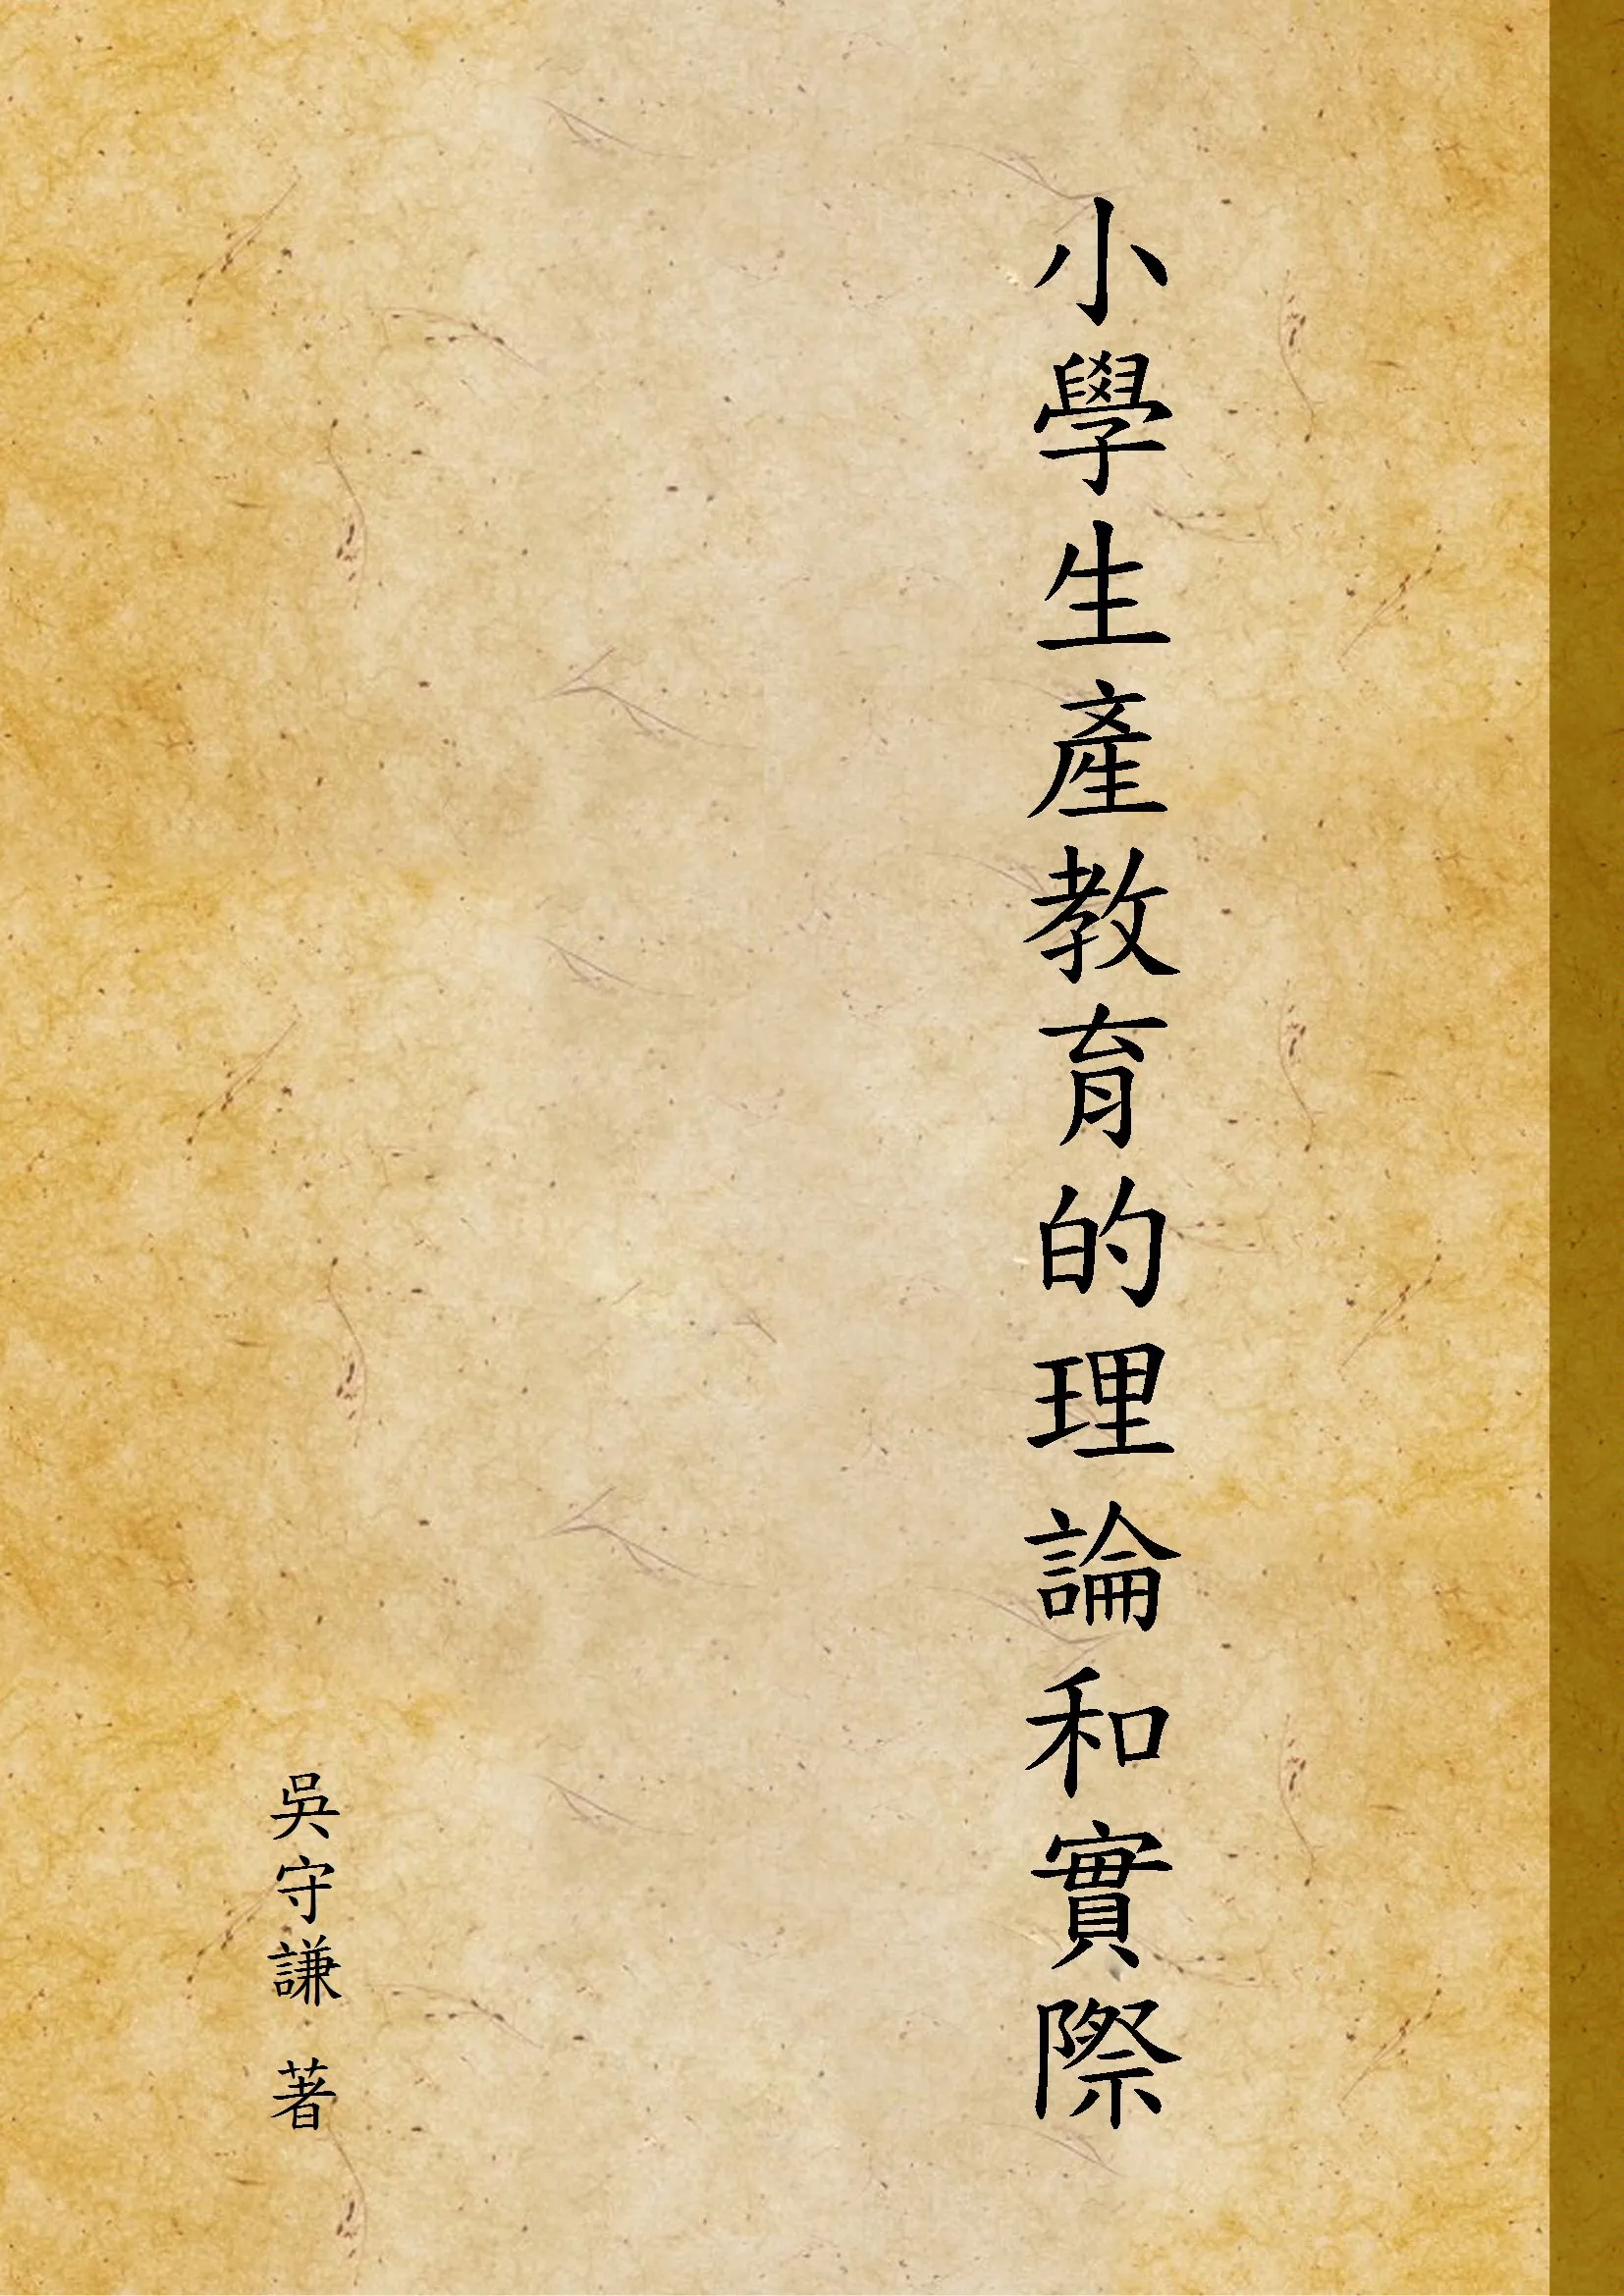 小學生產教育的理論和實際
吳守謙 著